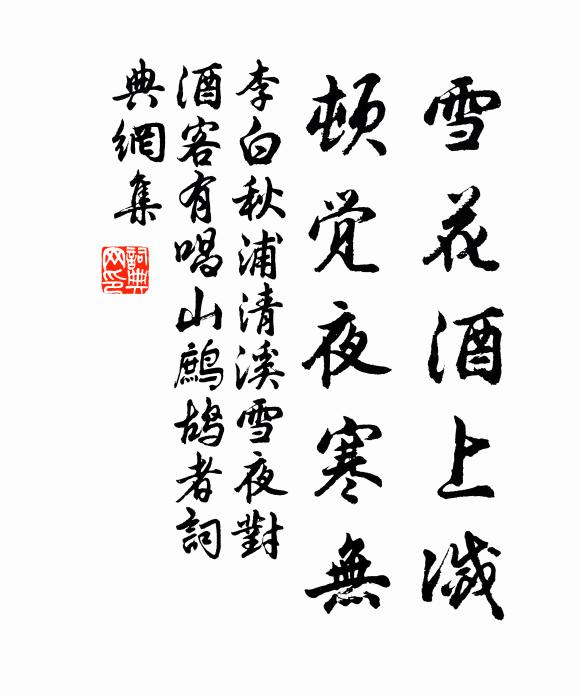 雪花酒上滅
頓覚夜寒無
李白秋浦清溪雪夜對
酒客有唱山鷓鴣者詞
典網集
詞典网印